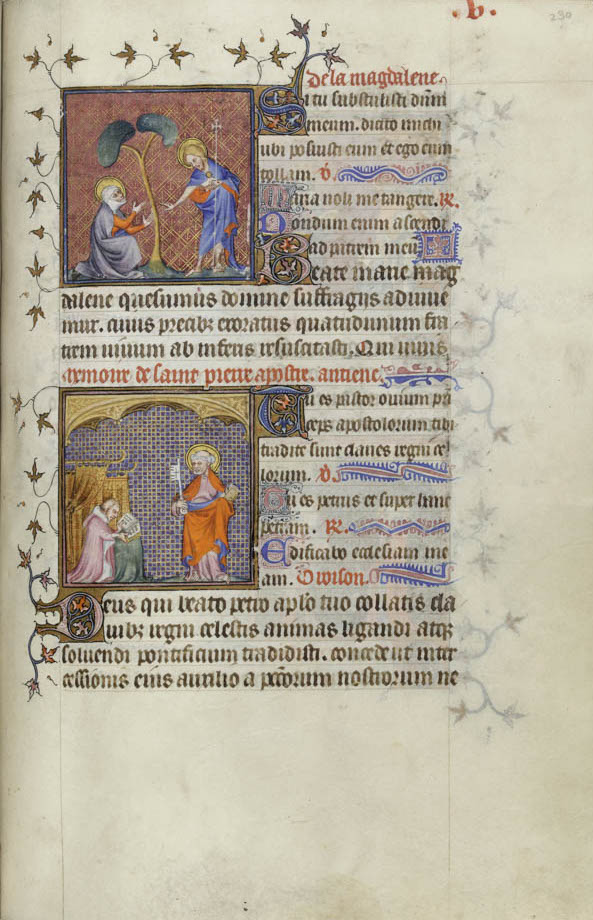 .b.
290
De la magdalene.
Si tu sustulisti dum
meum. dicito michi
ubi posuisti eum et ego eum
tollam. V.
Maria noli me tangere. R.
Nondum enim ascendi
ad patrem meu
Beate marie mag
dalene quesumus domine suffragijs adiuue
mur. cuius precibz exoratus quatriduanum fra
trem uiuum ab inferis resuscitasti. Qui uiuis
memoire de saint pierre apostre. antiene.
Tu es pastor ouium prin
ceps apostolorum tibi
tradite sunt claues regni ce
lorum. V.
Tu es petrus et super hanc
petram. R.
Edificabo ecclesiam me
am. Orison.
Deus qui beato petro aplo tuo collatis cla
uibz regni celestis animas ligandi atqz
soluendi pontificium tradidisti. concede ut inter
cessionis eius auxilio a pctorum nostrorum ne